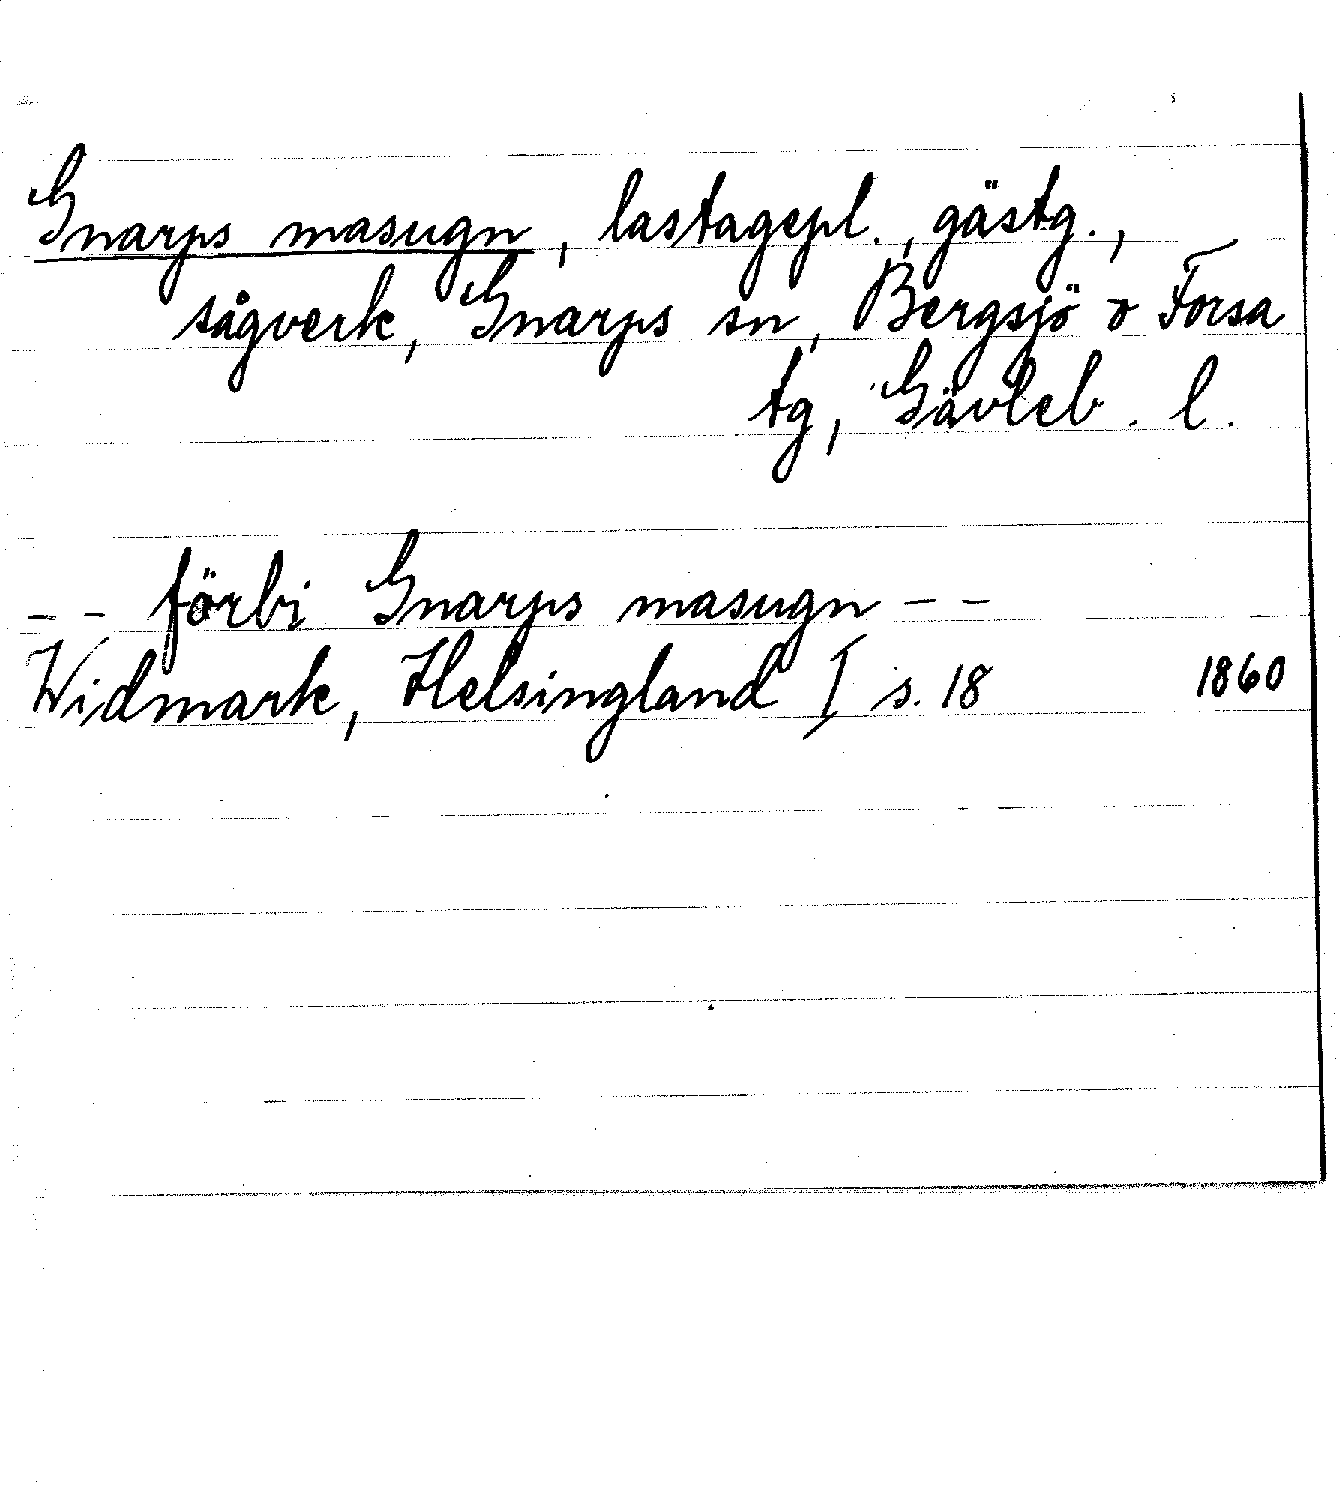 Gnarps masugn, lastagepl., gästg.,
sågverk, Gnarps sn, Bergsjö o Forsa
tg, Gävleb. l.
-- förbi Gnarps masugn --
Widmark, Helsingland I s. 18 1860